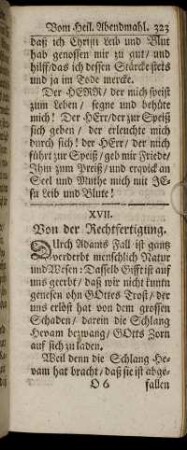 Vom Heil. Abendmahl. 323
daß ich Christi Leib und Blut
hab genossen mir zu gut/ und
hilff/ das ich dessen Stärcke stets
und ja im Tode mercke.
Der HERR/ der mich speist
zum Leben/ segne und behüte
mich! Der HErr/ der zur Speiß
sich geben/ der erleuchte mich
durch sich! der HErr/ der mich
führt zur Speiß/ geb mir Friede/
Ihm zum Preiß/ und erqvick an
Seel und Muthe mich mit JE-
su Leib und Blute!
XVII.
Von der Rechtfertigung.
DUrch Adams Fall ist gantz
verderbt menschlich Natur
und Wesen: Dasselb Gifft ist auf
uns geerbt/ daß wir nicht kunten
genesen ohn GOttes Trost/ der
uns erlöst hat von dem grossen
Schaden/ darein die Schlang
Hevam bezwang/ GOtts Zorn
auf sich zu laden.
Weil denn die Schlang He-
vam hat bracht/ daß sie ist abge-
O 6 fallen